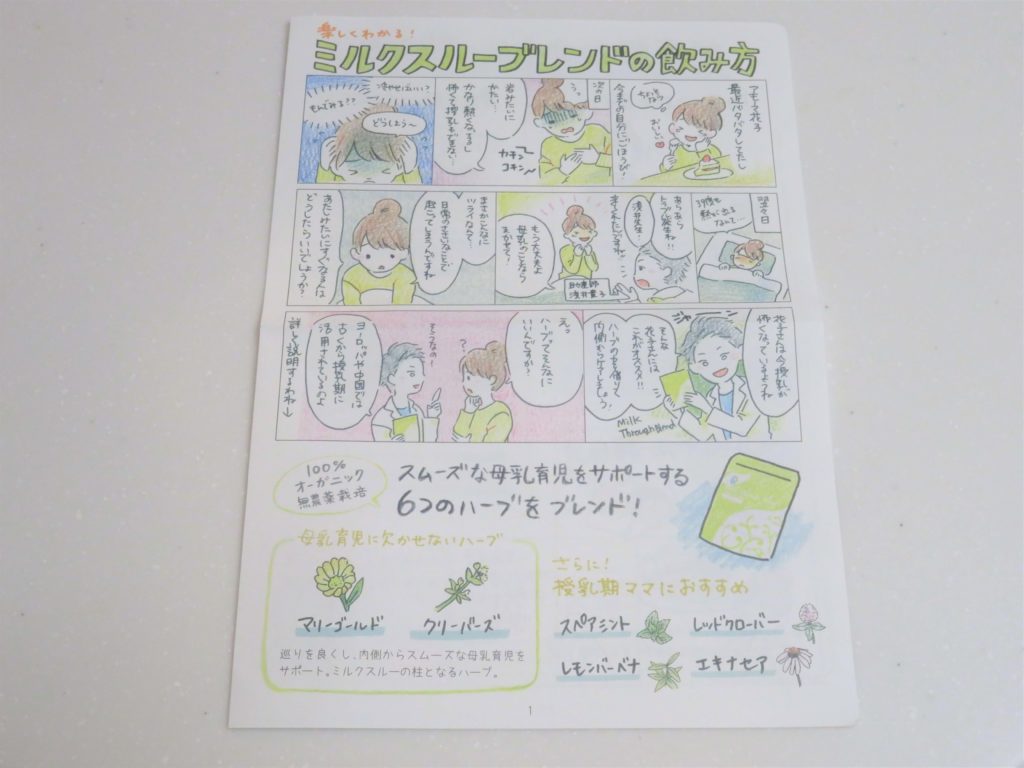 楽しくわかる!
ミルクスルーブレンドの飲み方
アモーマ花子
最近バタバタしてたし
ちょいと
おいしい
今までの自分にごほうび!
次の日
うっ
カチン
コチン
岩みたいに
かたい…
かなり熱くなってるし
怖くて授乳もできない…
冷やせばいい?
もんでみる??
どうしよう〜
翌々日
39度も
熱が出る
なんて…
あらあら
トラブル発生ね!!
浅井先生!
もう大丈夫よ
母乳のことなら
まかせて!
助産師
浅井貴子
まさかこんなに
ツライなんて…
日常のささいなことで
起こってしまうんですね
あたしみたいにすぐなる人は
どうしたらいいでしょうか?
花子さんは今授乳が
怖くなっているようね
ジャーン
そんな
花子さんには
これがオススメ!!
ハーブの力を借りて
内側からケアしましょう!
Milk
Through Blend
えっ
ハーブってそんなに
いいんですか?
そうなの!
ヨーロッパや中国では
古くから授乳期に
活用されているのよ
詳しく説明するわね→
100%
オーガニック
無農薬栽培
スムーズな母乳育児をサポートする
6つのハーブをブレンド!
母乳育児に欠かせないハーブ
マリーゴールド
クリーバーズ
巡りを良くし、内側からスムーズな母乳育児を
サポート。ミルクスルーの柱となるハーブ。
さらに!
授乳期ママにおすすめ
スペアミント
レッドクローバー
レモンバーベナ
エキナセア
1